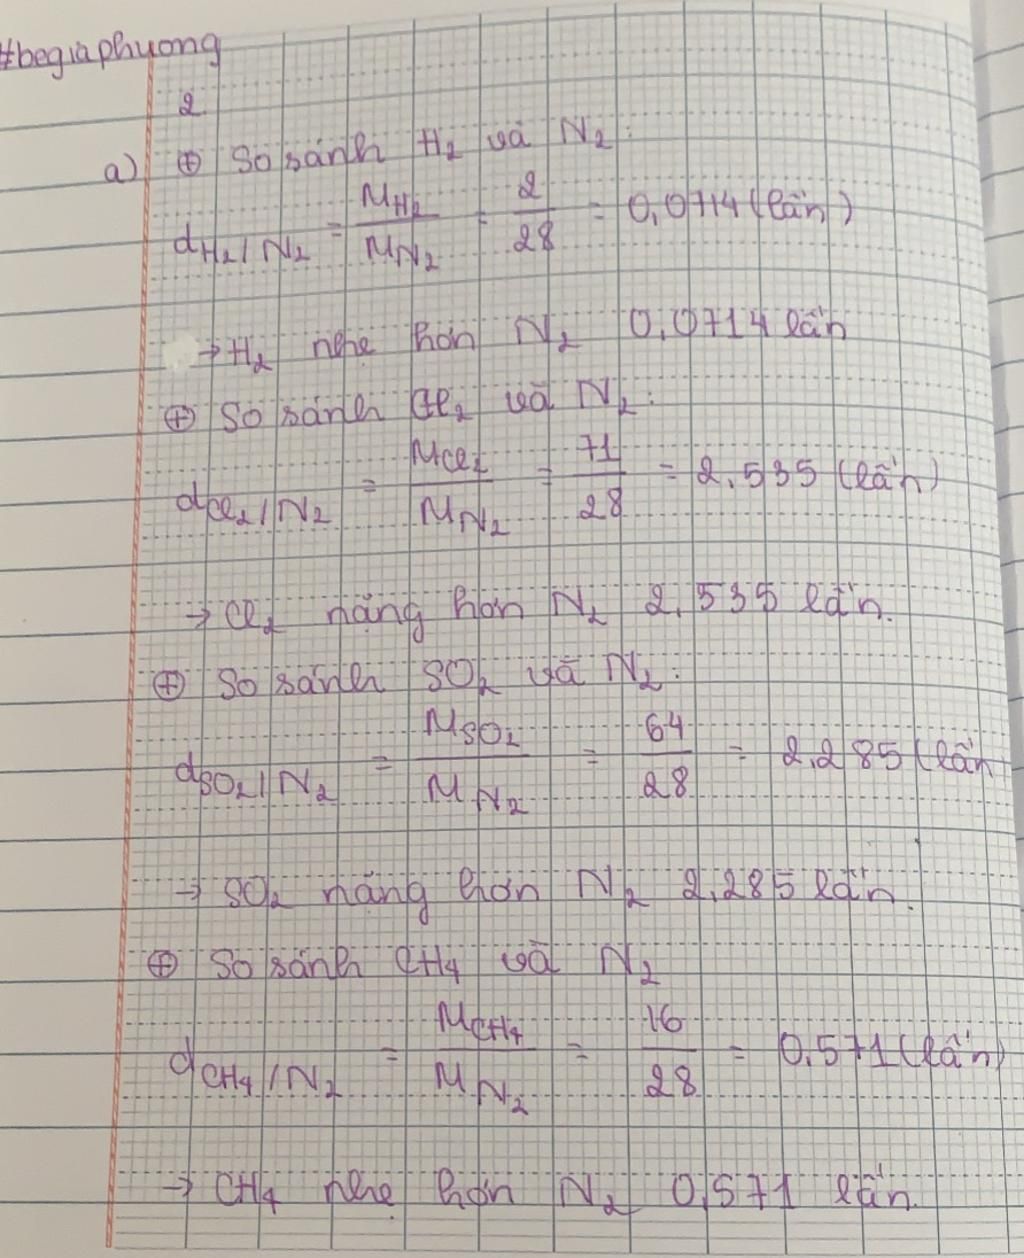 #begiaphuong
2
a) ⊕ So sánh H₂ và N₂:
dH₂/N₂ = MH₂/MN₂ = 2/28 = 0,0714 (lần)
→ H₂ nhẹ hơn N₂ 0,0714 lần
⊕ So sánh Cl₂ và N₂:
dCl₂/N₂ = MCl₂/MN₂ = 71/28 = 2,535 (lần)
→ Cl₂ nặng hơn N₂ 2,535 lần.
⊕ So sánh SO₂ và N₂:
dSO₂/N₂ = MSO₂/MN₂ = 64/28 = 2,285 (lần
→ SO₂ nặng hơn N₂ 2,285 lần.
⊕ So sánh CH₄ và N₂
dCH₄/N₂ = MCH₄/MN₂ = 16/28 = 0,571 (lần)
→ CH₄ nhẹ hơn N₂ 0,571 lần.